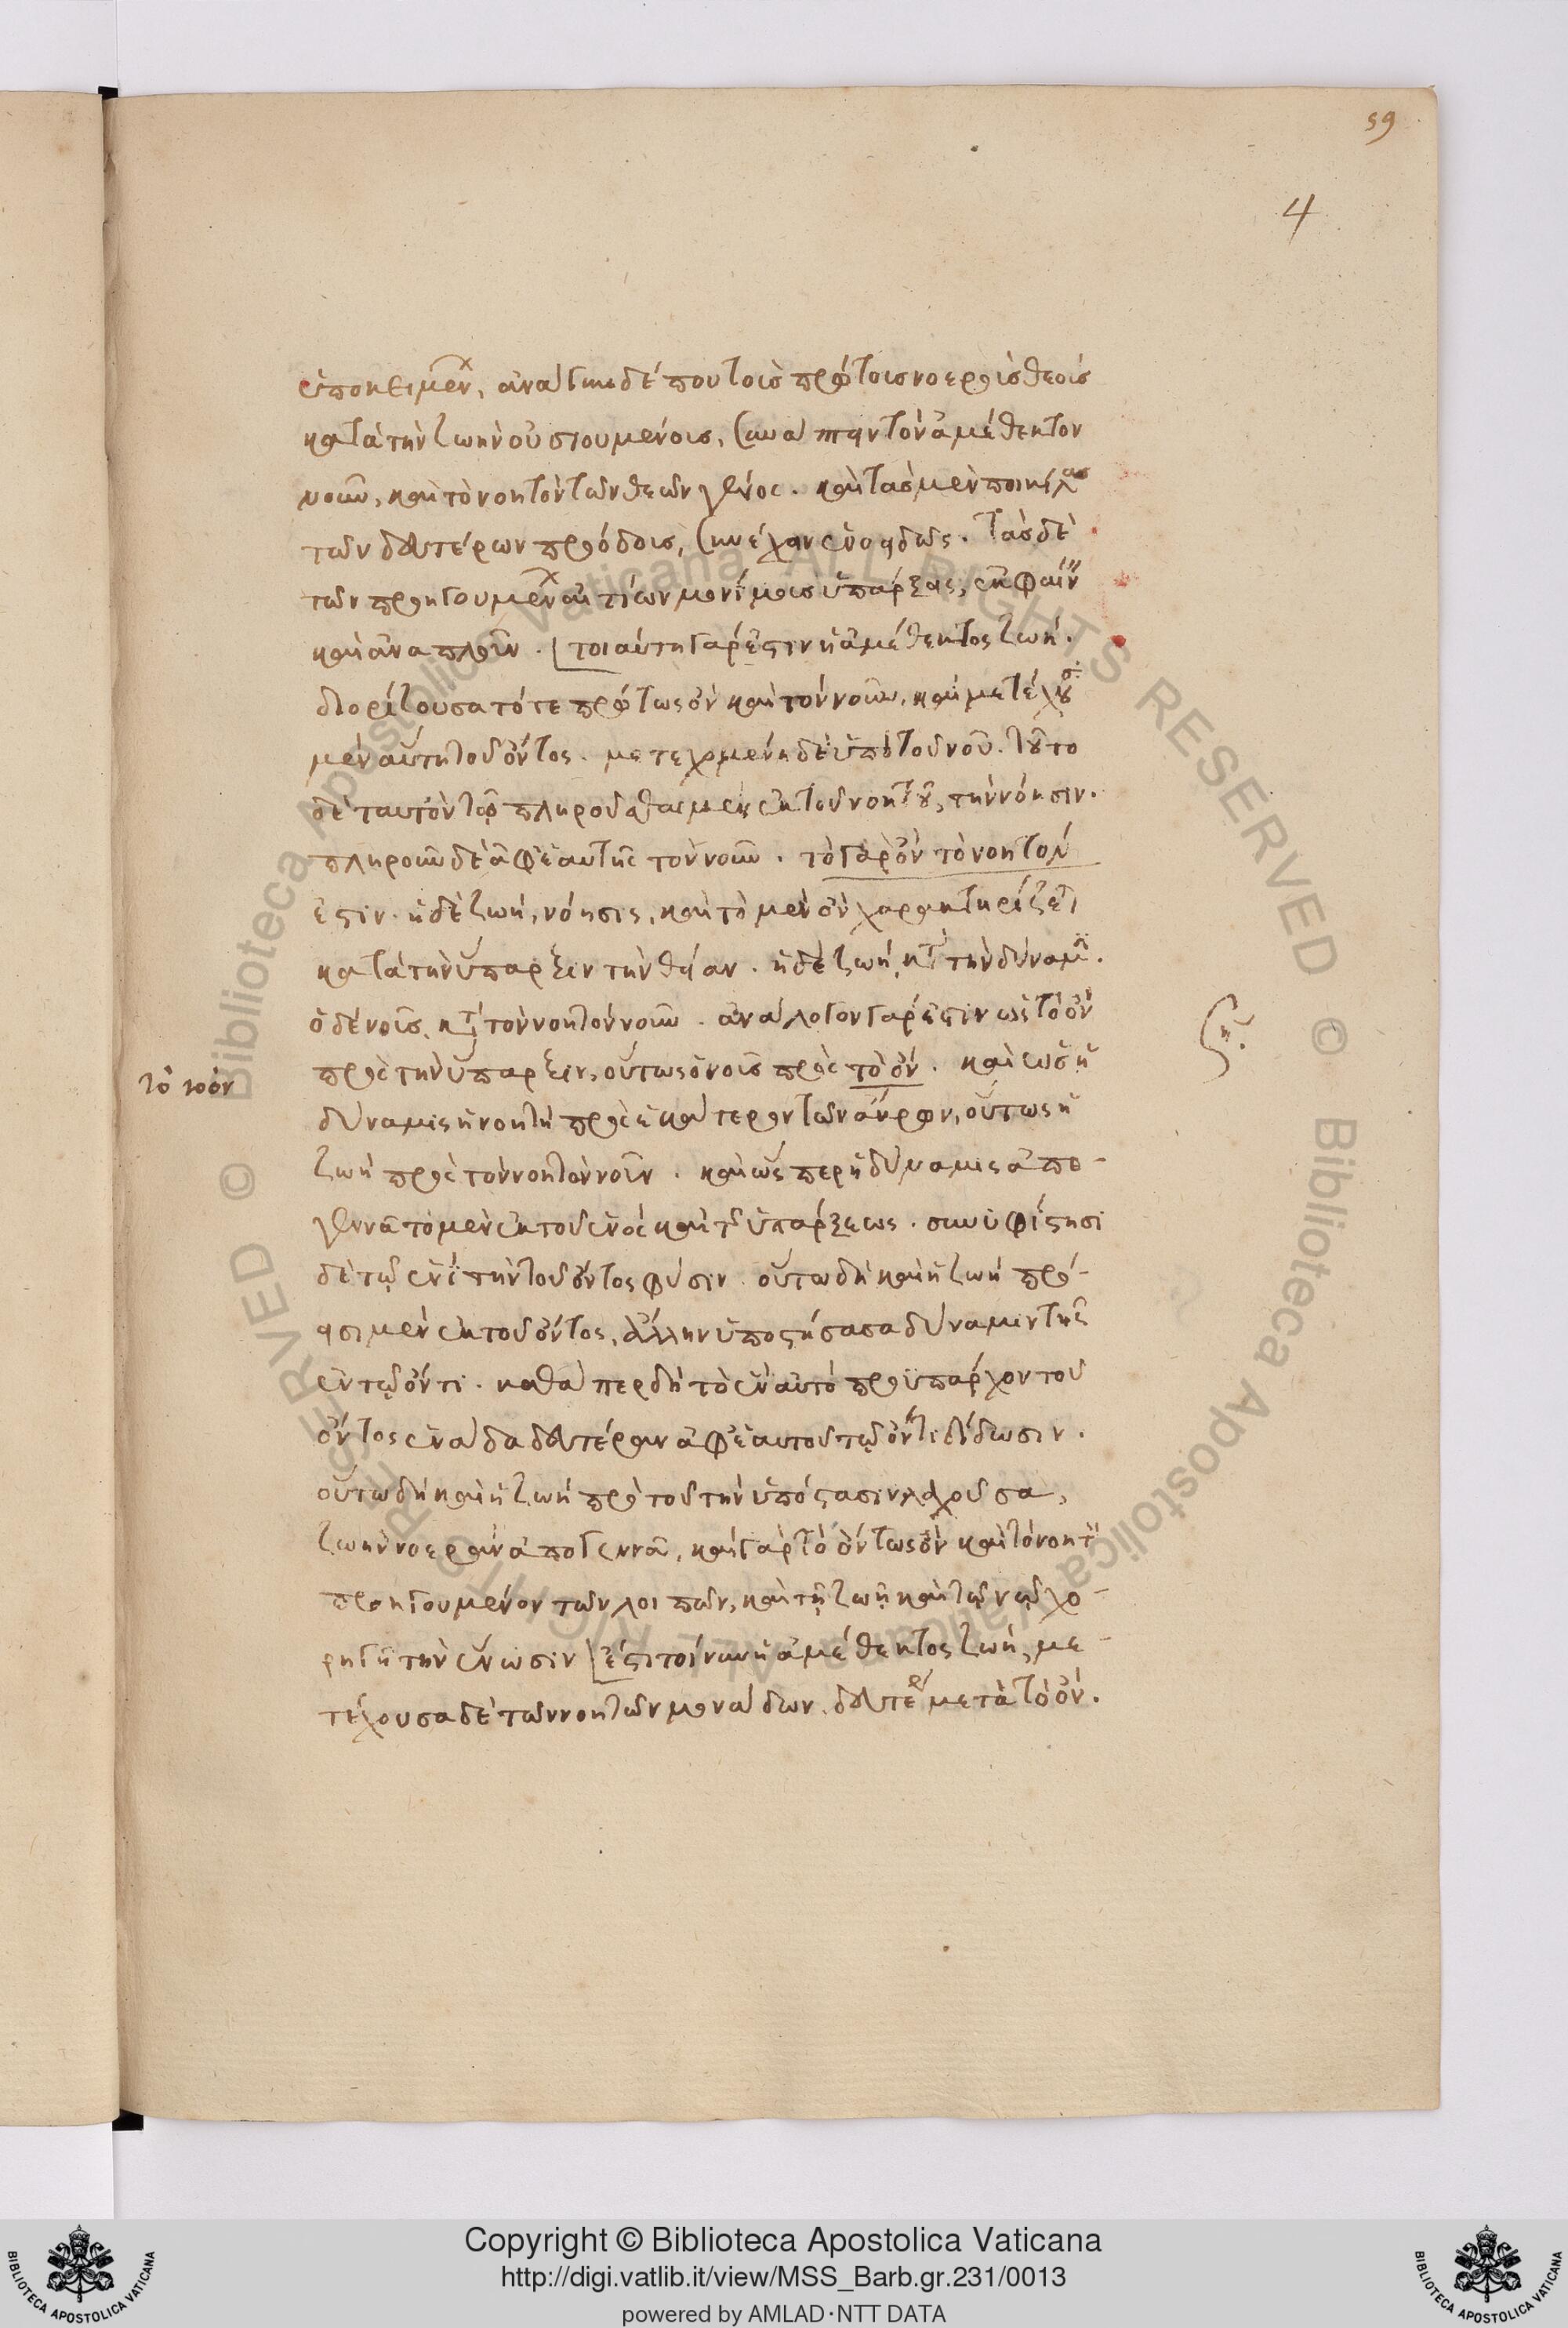 59
4
ὑποκειμένων, ἀνάγκη δέ που τοῖς πρώτοις νοεροῖς θεοῖς
κατὰ τὴν ζωὴν οὐσιουμένοις, συνάπτειν τὸν ἀμέθεκτον
νοῦν, καὶ τὸ νοητὸν τῶν θεῶν γένος. καὶ τὰς μὲν ποικίλας
τῶν δευτέρων προόδους, συνέχειν ἑνοειδῶς. τὰς δὲ
τῶν προηγουμένων αἰτίων μονίμους ὑπάρξεις, ἐκφαίνειν
καὶ ἀναπλοῦν. τοιαύτη γάρ ἐστιν ἡ ἀμέθεκτος ζωή.
διορίζουσα τό τε πρώτως ὂν καὶ τὸν νοῦν. καὶ μετέχουσα
μὲν αὕτη τοῦ ὄντος. μετεχομένη δὲ ὑπὸ τοῦ νοῦ. τοῦτο
δὲ ταυτὸν τῷ πληροῦσθαι μὲν ἐκ τοῦ νοητοῦ, τὴν νόησιν.
πληροῦν δὲ ἀφ' ἑαυτῆς τὸν νοῦν. τὸ γὰρ ὂν τὸ νοητόν
ἐστιν. ἡ δὲ ζωή, νόησις, καὶ τὸ μὲν ὂν χαρακτηρίζεται
κατὰ τὴν ὕπαρξιν τὴν θείαν. ἡ δὲ ζωή, κατὰ τὴν δύναμιν.
ὁ δὲ νοῦς, κατὰ τὸν νοητὸν νοῦν. ἀνάλογον γάρ ἐστιν ὡς τὸ ὂν
πρὸς τὴν ὕπαρξιν, οὕτως ὁ νοῦς πρὸς τὸ ὄν. καὶ ὡς ἡ
τὸ
δύναμις ἡ νοητὴ πρὸς ἑκάτερον τῶν ἄκρων, οὕτως ἡ
ζωὴ πρὸς τὸν νοητὸν νοῦν. καὶ ὥσπερ ἡ δύναμις ἀπο-
γεννᾶτο μὲν ἐκ τοῦ ἑνὸς καὶ τῆς ὑπάρξεως. συνυφίστησι
δὲ τῷ ἑνὶ τὴν τοῦ ὄντος φύσιν. οὕτω δὴ καὶ ἡ ζωὴ πρό-
εισι μὲν ἐκ τοῦ ὄντος, ἄλλην ὑποστήσασα δύναμιν τῆς
ἐν τῷ ὄντι. καθάπερ δὴ τὸ ἓν αὐτὸ προϋπάρχον τοῦ
ὄντος ἑνάδα δευτέραν ἀφ' ἑαυτοῦ τῷ ὄντι δίδωσιν.
οὕτω δὴ καὶ ἡ ζωὴ πρὸ τοῦ τὴν ὑπόστασιν λαχοῦσα,
ζωὴν νοερὰν ἀπογεννᾶ, καὶ γὰρ τὸ ὄντως ὂν καὶ τὸ νοητὸν
προηγουμένον τῶν λοιπῶν, καὶ τῇ ζωῇ καὶ τῷ νῷ χο-
ρηγεῖ τὴν ἕνωσιν ἔστι τοίνυν ἡ ἀμέθεκτος ζωή, με-
τέχουσα δὲ τῶν νοητῶν μονάδων. δευτέρα μετὰ τὸ ὄν.
Copyright © Biblioteca Apostolica Vaticana
http://digi.vatlib.it/view/MSS_Barb.gr.231/0013
powered by AMLAD·NTT DATA